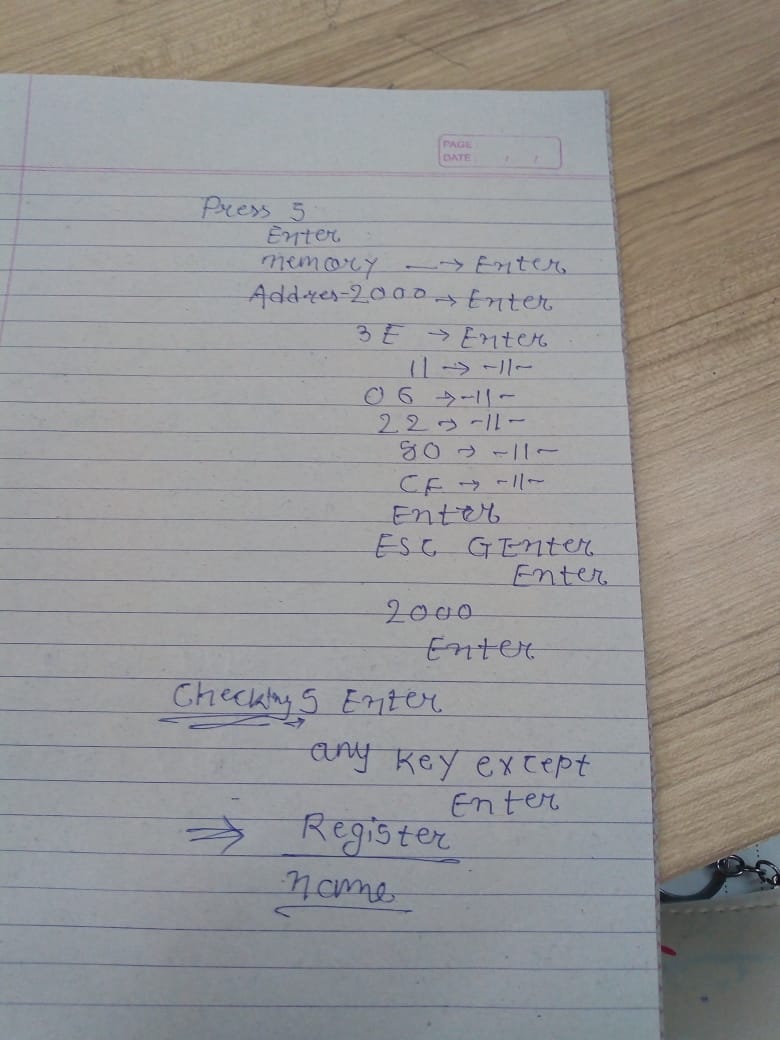 PAGE
DATE / /
Press 5
Enter
memory → Enter
Addres-2000 → Enter
3E → Enter
11 → -11-
06 → -11-
22 → -11-
80 → -11-
CF → -11-
Enter
ESC G Enter
Enter
2000
Enter
Checking 5 Enter
any key except
Enter
⇒ Register
name